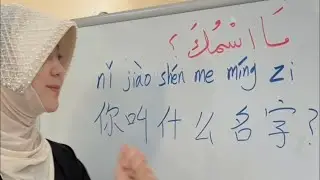 مَا اسْمُكَ ؟
nǐ jiào shén me míng zi
你叫什么名字?